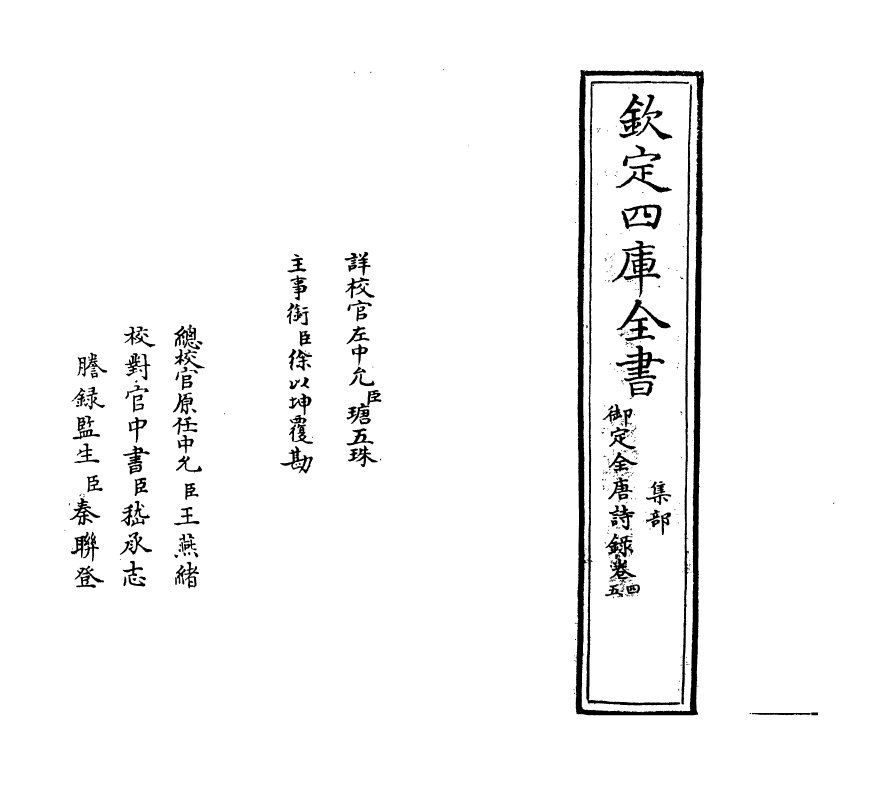 欽定四庫全書
集部
御定全唐詩録卷四五
詳校官左中允臣瑭五珠
主事銜臣徐以坤覆勘
總校官原任中允臣王燕緒
校對官中書臣嵇承志
謄録監生臣秦聯登